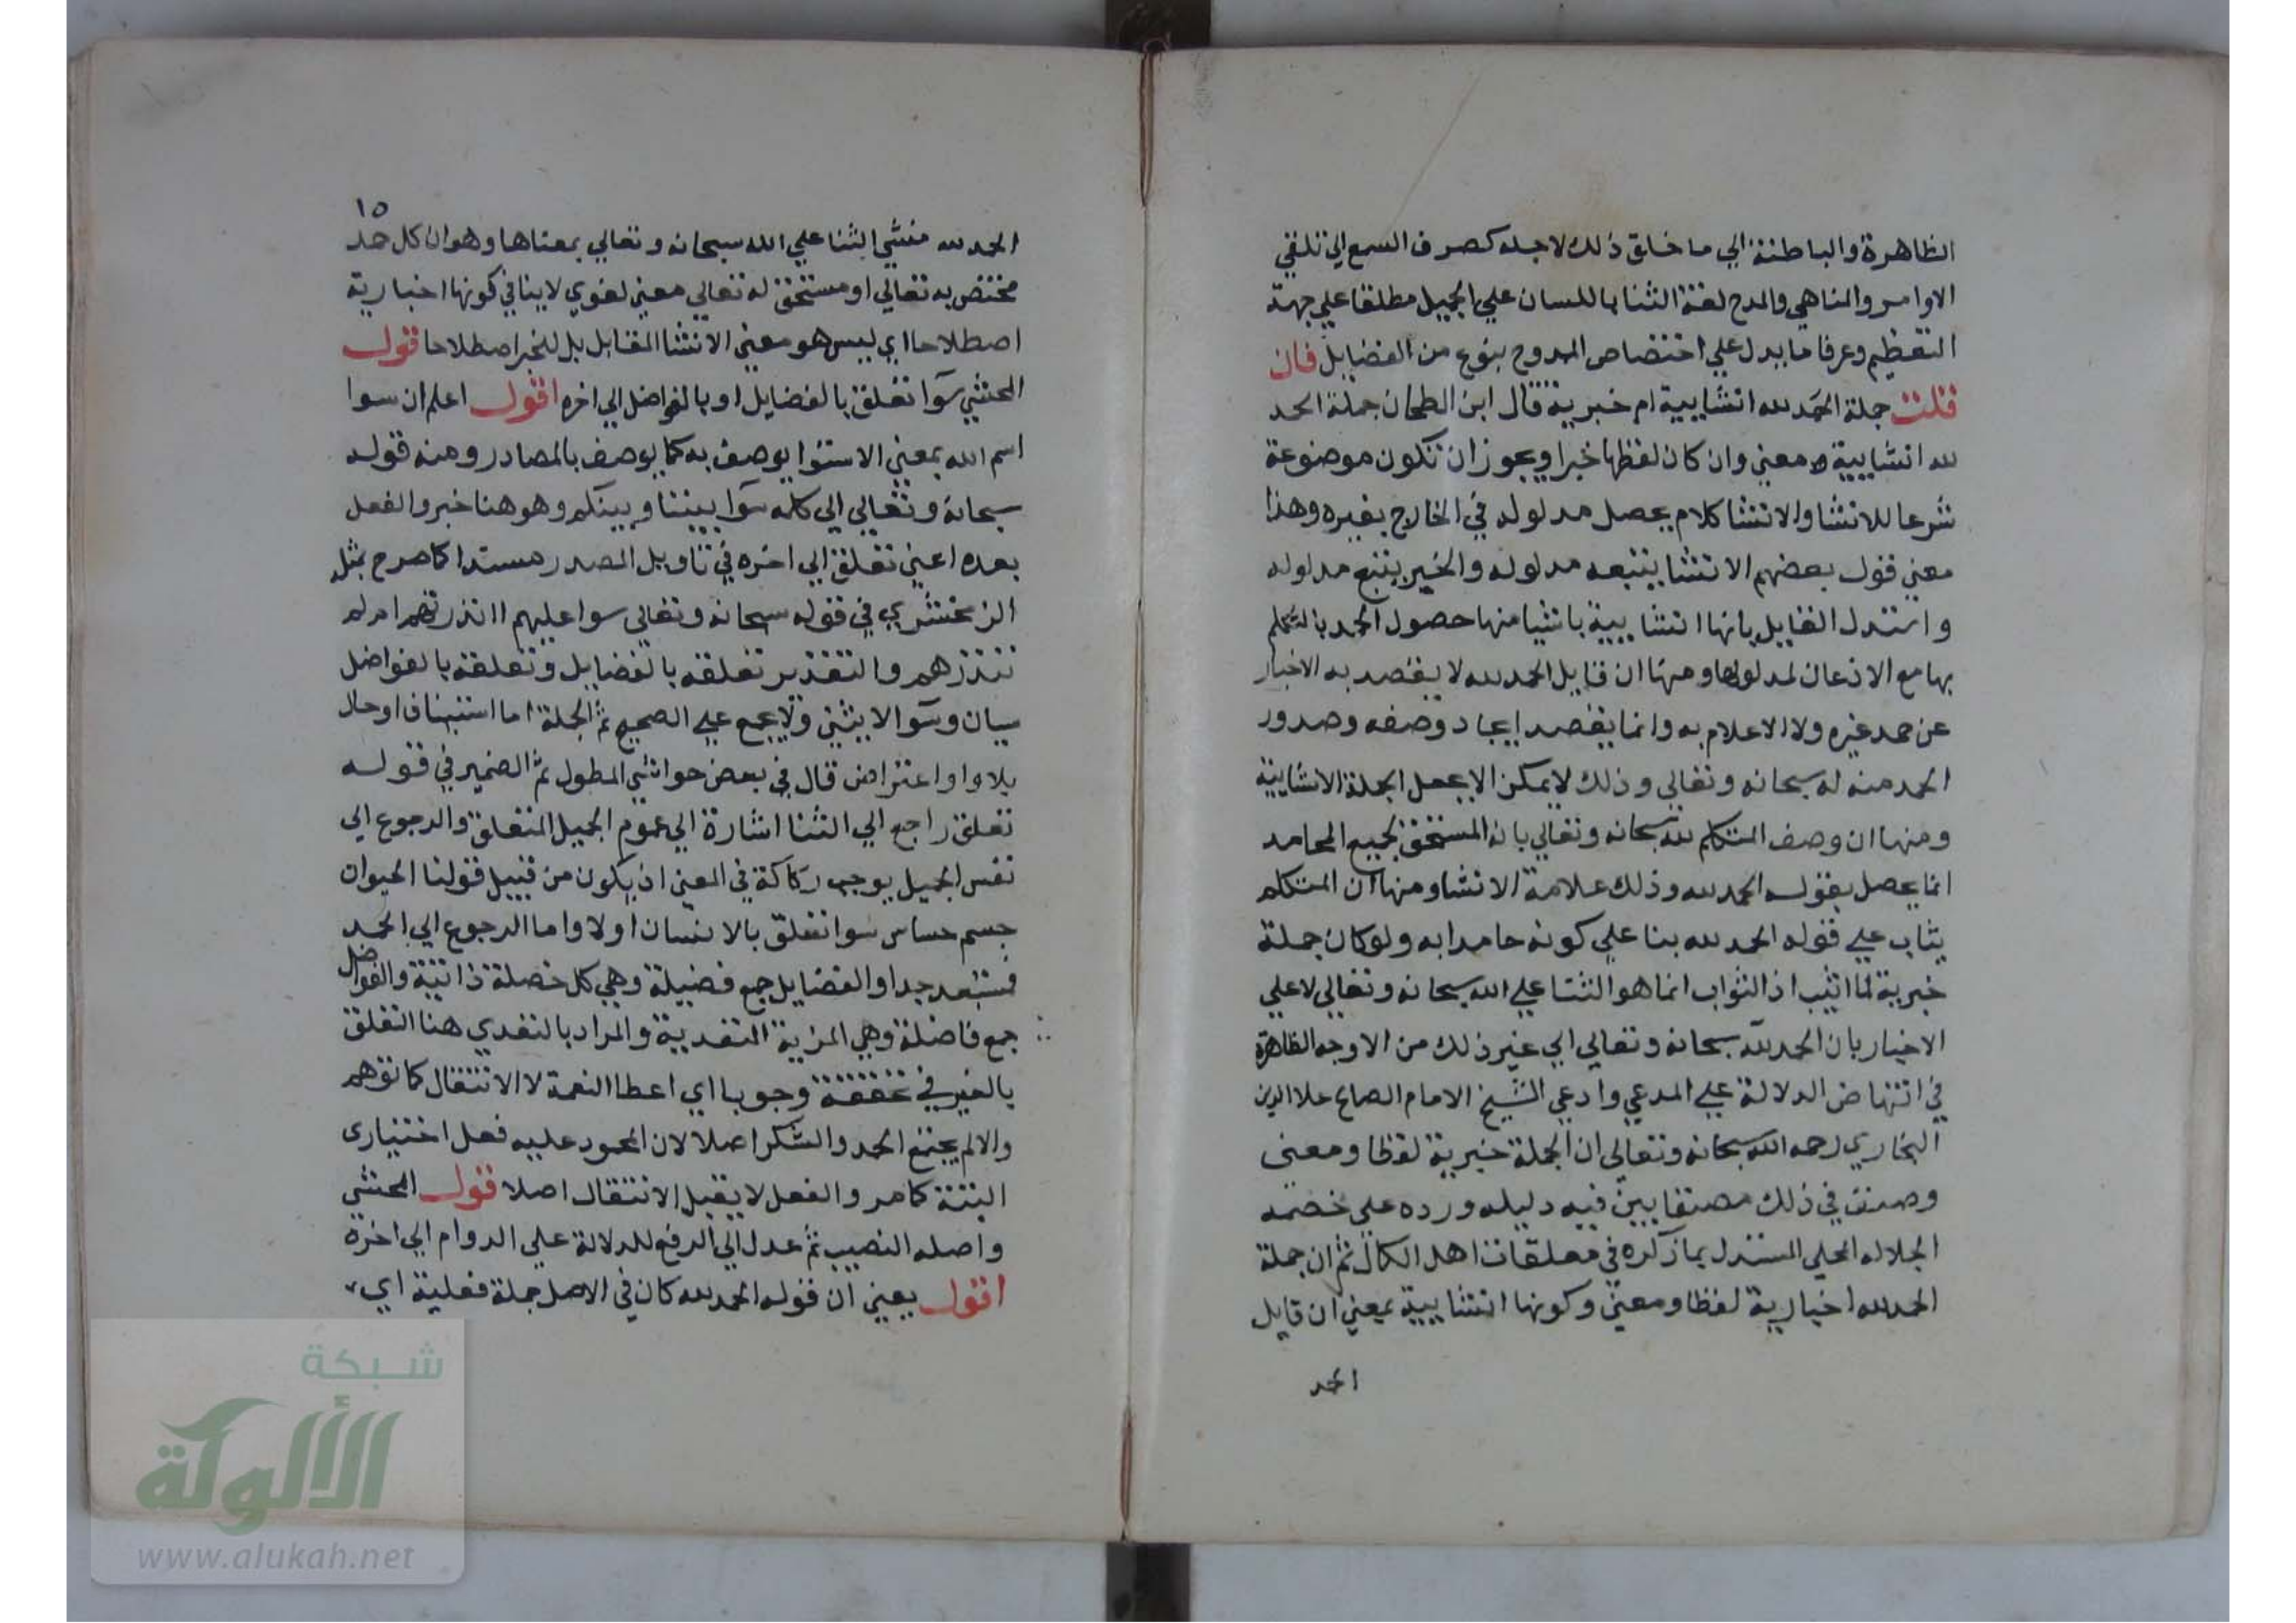 الظاهرة والباطنة الي ما خلق ذلك لاجله كصرف السمع الي تلقي
الاوامر والمناهي والمدح لغة الثنا باللسان علي الجميل مطلقا علي جهة
التعظيم وعرفا ما يدل علي اختصاص الممدوح بنوع من الفضايل فان
قلت جملة الحمد لله انشايية ام خبرية قال ابن الطحان جملة الحمد
لله انشايية معني وان كان لفظها خبرا ويجوز ان تكون موضوعة
شرعا للانشا والانشا كلام يحصل مدلوله في الخارج بغيره وهذا
معني قول بعضهم الانشا يتبعه مدلوله والخبر يتبع مدلوله
واستدل القايل بانها انشايية باشيا منها حصول الحمد بالتكلم
بها مع الاذعان لمدلولها ومنها ان قايل الحمد لله لا يقصد به الاخبار
عن حمد غيره ولا الاعلام به وانما يقصد ايجاد وصفه وصدور
الحمد منه له سبحانه وتعالي وذلك لا يمكن الا بجعل الجملة الانشايية
ومنها ان وصف المتكلم لله سبحانه وتعالي بانه المستحق لجميع المحامد
انما يحصل بقوله الحمد لله وذلك علامة الانشا ومنها ان المتكلم
يثاب علي قوله الحمد لله بنا علي كونه حامدا به ولو كان جملة
خبرية لما اثيب اذ الثواب انما هو الثنا علي الله سبحانه وتعالي لا علي
الاخبار بان الحمد لله سبحانه وتعالي الي غير ذلك من الاوجه الظاهرة
في انتهاض الدلالة علي المدعي وادعي الشيخ الامام الصالح علا الدين
البخاري رحمه الله سبحانه وتعالي ان الجملة خبرية لفظا ومعني
وصنف في ذلك مصنفا بين فيه دليله ورده علي خصمه
الجلال المحلي المستدل بما ذكره في معلقات اهل الكمال ثم ان جملة
الحمد لله اخبارية لفظا ومعني وكونها انشايية بمعني ان قايل
الحمد
١٥
الحمد لله منشي الثنا علي الله سبحانه وتعالي بمعناها وهو ان كل حمد
مختص به تعالي او مستحق له تعالي معني لغوي لا ينافي كونها اخبارية
اصطلاحا اي ليس هو معني الانشا المقابل بل للخبر اصطلاحا قول
المحشي سوا تعلق بالفضايل او بالفواضل الي اخره اقول اعلم ان سوا
اسم الله بمعني الاستوا يوصف به كما يوصف بالمصادر ومنه قوله
سبحانه وتعالي الي كلمه سوا بيننا وبينكم وهو هنا خبر والفعل
بعده اعني تعلق الي اخره في تاويل المصدر مبتدا كما صرح بمثله
الزمخشري في قوله سبحانه وتعالي سوا عليهم اانذرتهم ام لم
تنذرهم والتقدير تعلقه بالفضايل وتعلقه بالفواضل
سيان وسوا لا يثني ولا يجمع علي الصحيح ثم الجملة اما استيناف او حال
بلا واو او اعتراض قال في بعض حواشي المطول ثم الضمير في قوله
تعلق راجع الي الثنا اشارة الي عموم الجميل المتعلق والرجوع الي
نفس الجميل يوجب ركاكة في المعني اذ يكون من قبيل قولنا الحيوان
جسم حساس سوا تعلق بالانسان اولا واما الرجوع الي الحمد
فمستبعد جدا والفضايل جمع فضيلة وهي كل خصلة ذاتية والفواضل
جمع فاضلة وهي المزية التعدية والمراد بالتعدي هنا التعلق
بالغير في تحققه وجوبا اي اعطا النعمة لا الانتقال كما توهم
والا لم يجتمع الحمد والشكر اصلا لان المحمود عليه فعل اختياري
البتة كما مر والفعل لا يقبل الانتقال اصلا قول المحشي
واصله النصب ثم عدل الي الرفع للدلالة علي الدوام الي اخره
اقول يعني ان قوله الحمد لله كان في الاصل جملة فعلية اي
شبكة
الألوكة
www.alukah.net